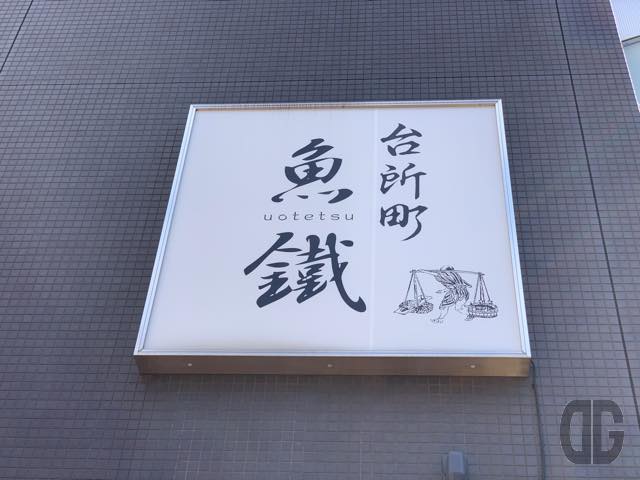 台所町
魚
uotetsu
鐵
DG